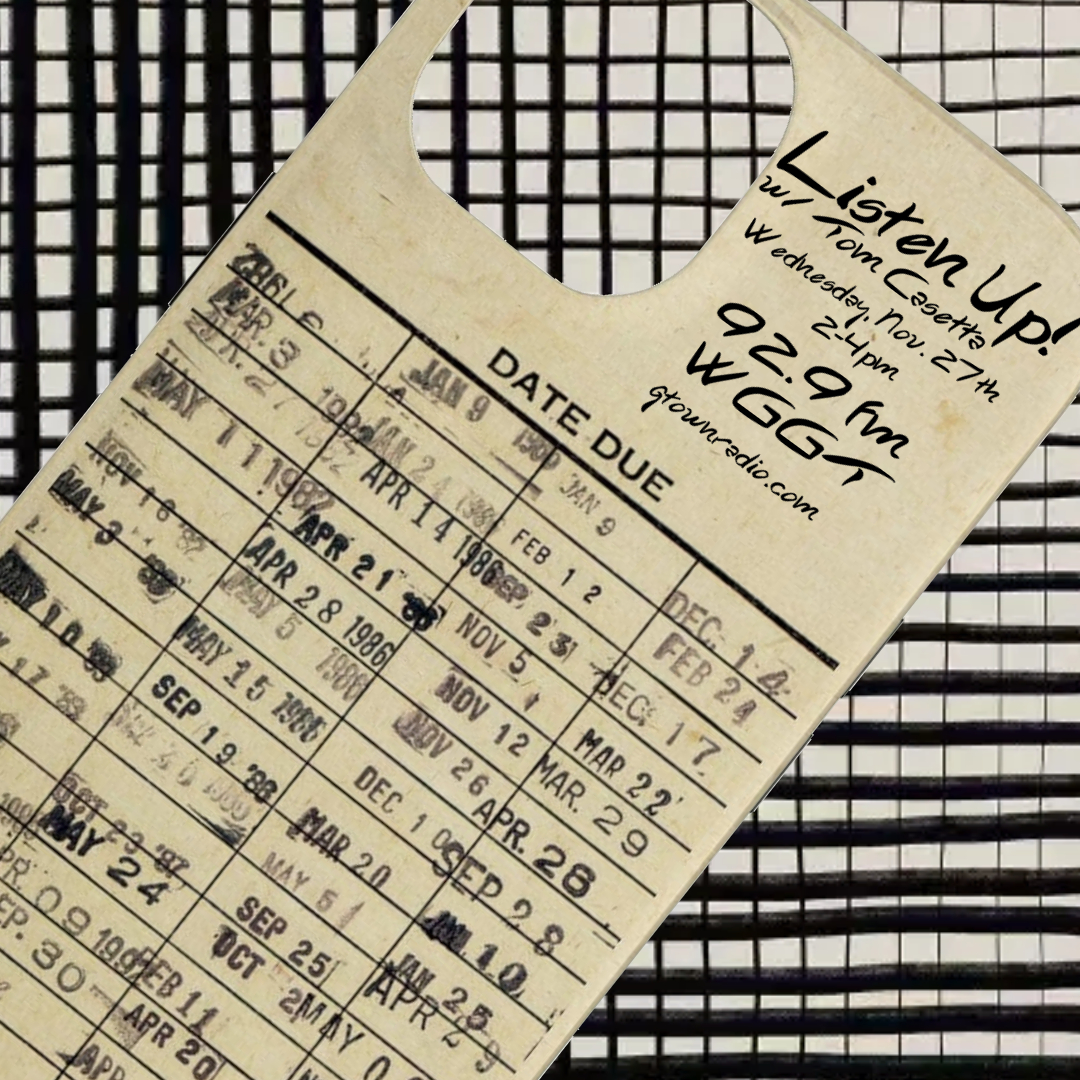 Listen Up!
w/ Tom Casetta
Wednesday, Nov. 27th
2-4pm
92.9 fm
WGGT
gtownradio.com
DATE DUE
MAR. 3
MAY 1 1 1982
NOV 1 6 '82
MAY 3
JAN 9
JAN 2 4
APR 1 4 1986
APR 2 1 '86
APR 2 8 1986
MAY 5 1986
MAY 1 5 1986
SEP 1 9 '86
OCT 23 '87
MAY 24
APR. 09 199
SEP. 30
JAN 9
FEB 1 2
SEP 23
NOV 5
NOV 12
NOV 26
DEC 1 0
MAR 20
MAY 5
SEP 25
OCT 2
FEB 11
APR 20
APR
DEC. 1 4
FEB 24
DEC 17
MAR 22
MAR. 29
APR. 28
SEP 28
JAN 25
APR 29
MAY 0